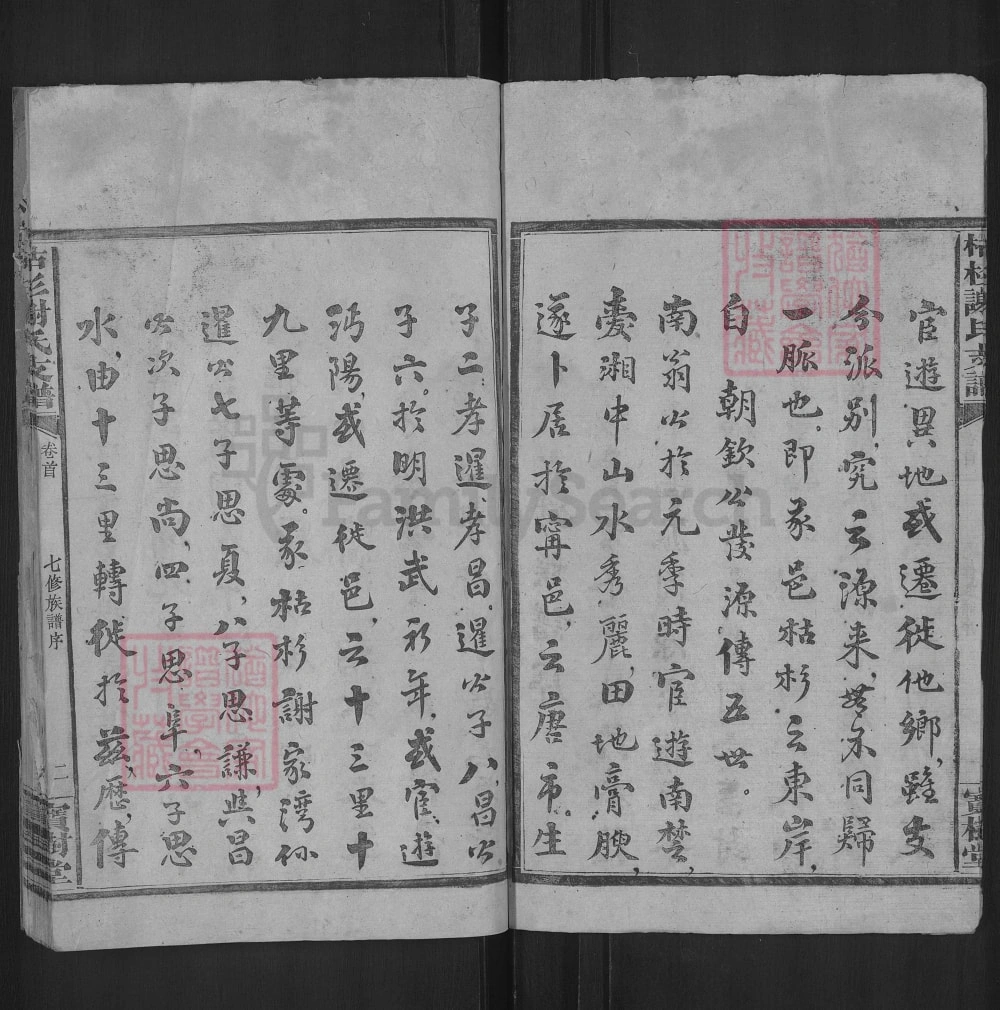 枯杉謝氏支譜
寶樹堂
宦遊異地或遷徙他鄉，雖支
分派別，究云源来，無不同歸
一脈也，即豕邑枯杉云東岸，
自朝欽公發源傳五世。
南翁公於元季時宦遊南楚，
愛湘中山水秀麗，田地膏腴，
遂卜居於寧邑，云唐市。生
子二孝暹，孝昌，暹公子八，昌公
子六。於明洪武初年，或宦遊
沔陽，或遷徙邑，云十三里十
九里等處。豕枯杉謝家灣係
暹公七子思夏，八子思謙，與昌
公次子思尚，四子思阜，六子思
水，由十三里轉徙於茲，歷傳
枯杉謝氏支譜
卷首
七修族譜序
二
寶樹堂
FamilySearch